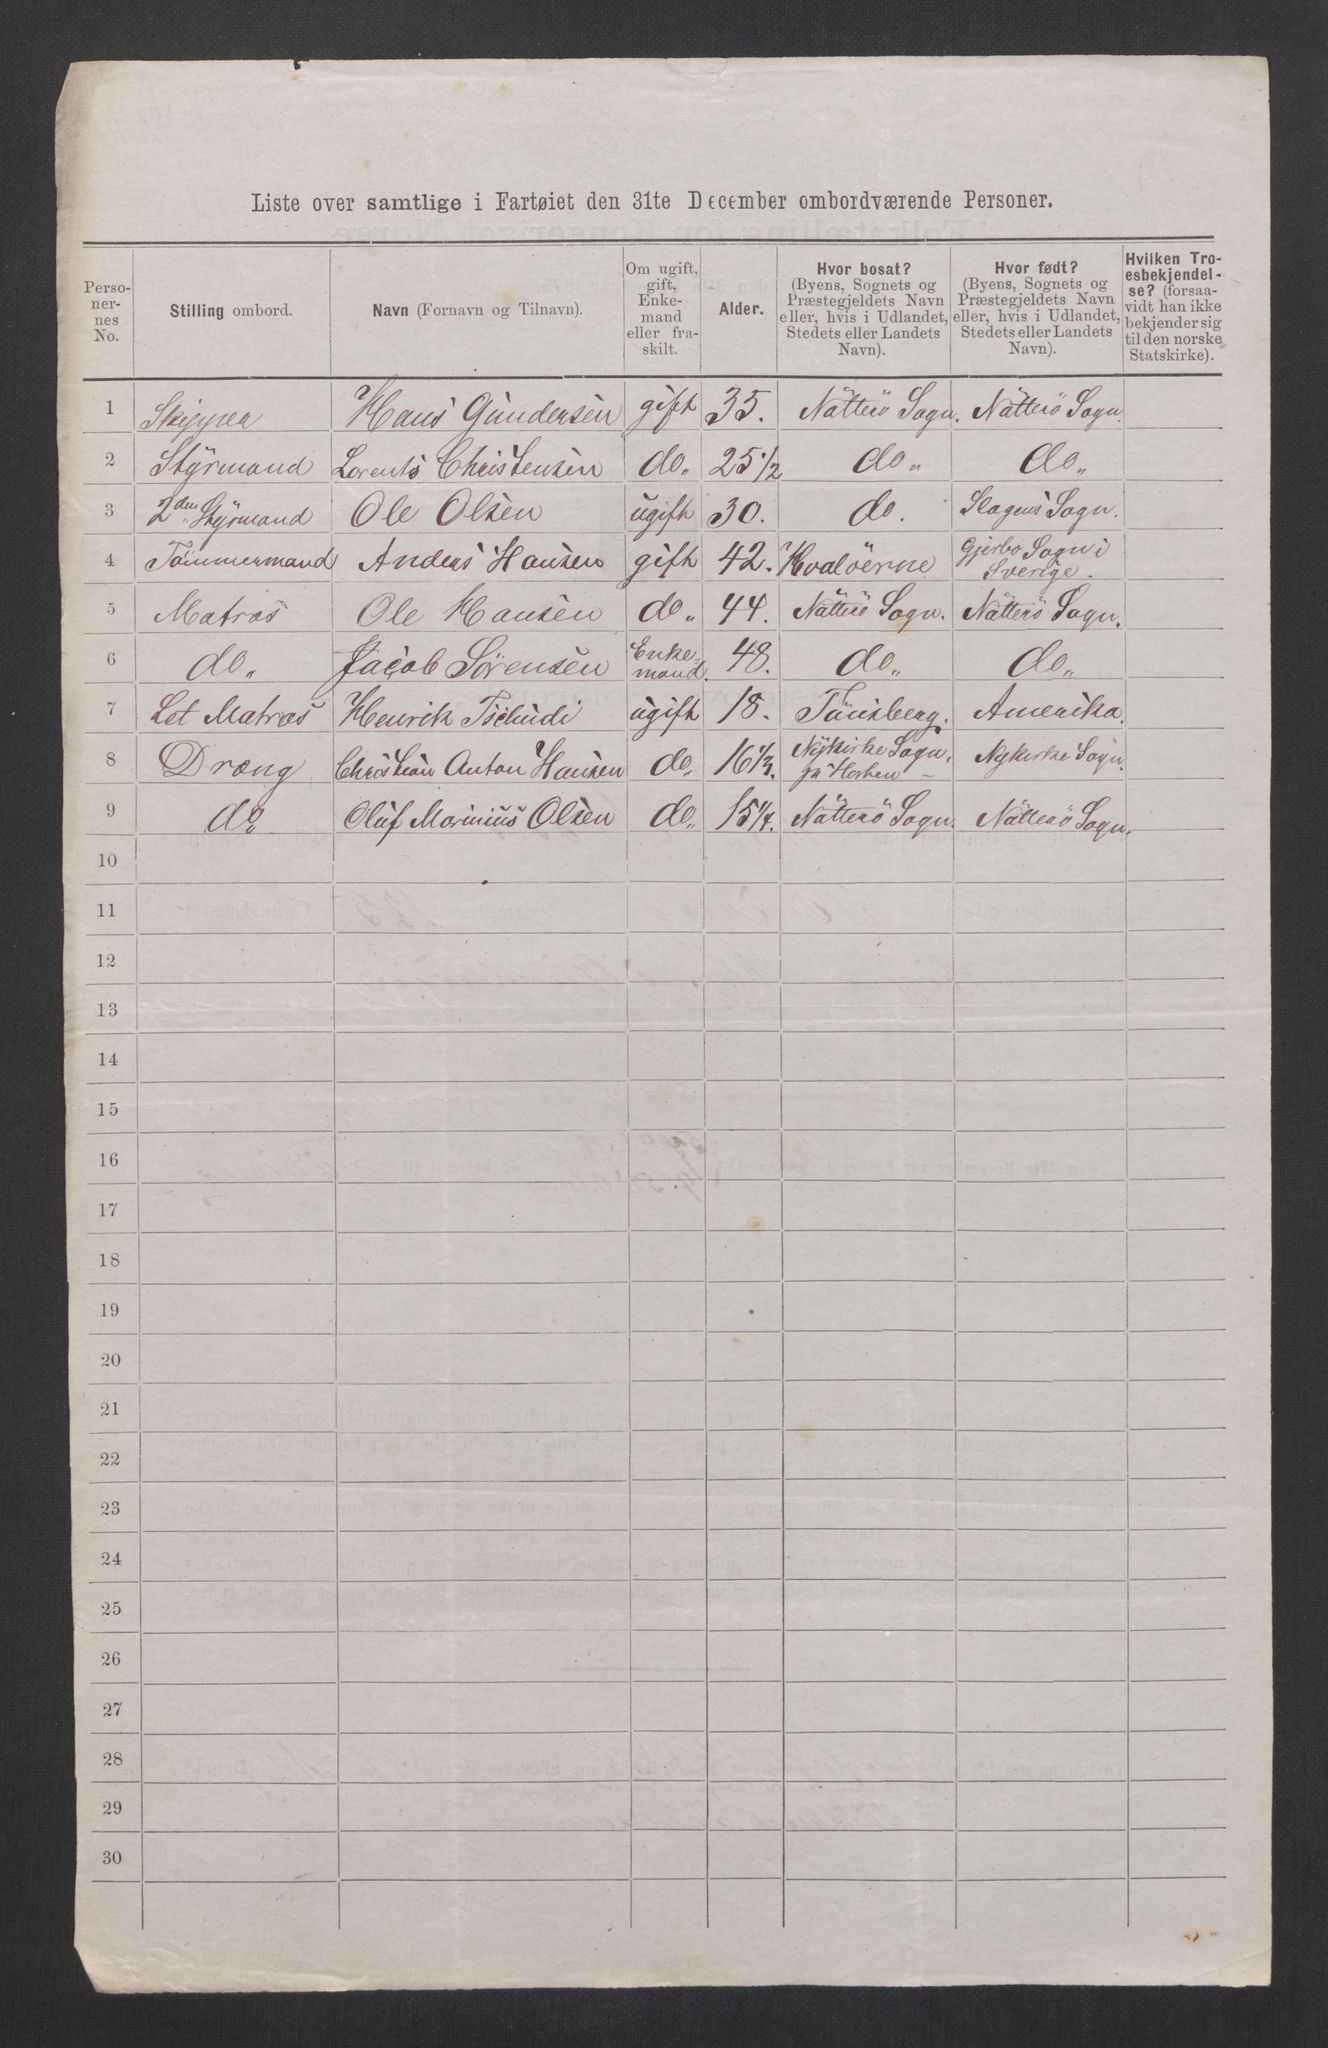 Liste over samtlige i Fartøiet den 31te December ombordværende Personer.
Perso-
ner-
nes
No.
Stilling ombord.
Navn (Fornavn og Tilnavn).
Om ugift,
gift,
Enke-
mand
eller fra-
skilt.
Alder.
Hvor bosat?
(Byens, Sognets og
Præstegjeldets Navn
eller, hvis i Udlandet,
Stedets eller Landets
Navn).
Hvor født?
(Byens, Sognets og
Præstegjeldets Navn
eller, hvis i Udlandet,
Stedets eller Landets
Navn).
Hvilken Tro-
esbekjendel-
se? (forsaa-
vidt han ikke
bekjender sig
til den norske
Statskirke).
1 Skipper Hans Gundersen gift 35. Nötterö Sogn. Nötterö Sogn.
2 Styrmand Lorents Christensen do„ 25 1/2 do„ do„
3 2den Styrmand Ole Olsen ugift 30. do. Slagens Sogn.
4 Tömmermand Anders Hansen gift 42. Hvalöerne Gjerbo Sogn i
Sverige.
5 Matros Ole Hansen do„ 44. Nötterö Sogn. Nötterö Sogn.
6 do„ Jacob Sørensen Enke-
mand. 48. do„ do„
7 Let Matros Henrik Tschudi ugift 18. Tönsberg. Amerika.
8 Dræng Christian Anton Hansen do„ 16 1/3. Nykirke Sogn.
Nykirke Sogn.
9 do„ Oluf Marinius Olsen do„ 15 1/4. Nötterö Sogn. Nötterö Sogn.
10
11
12
13
14
15
16
17
18
19
20
21
22
23
24
25
26
27
28
29
30